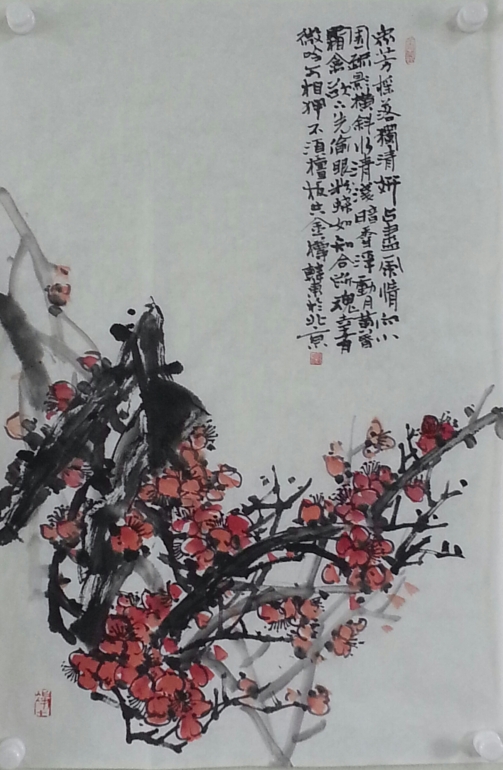 衆芳摇落獨清妍占盡風情向小
園疏影横斜水清淺暗香浮動月黄昏
霜禽欲下先偷眼粉蝶如知合断魂幸有
微吟可相狎不須檀板共金樽於北京